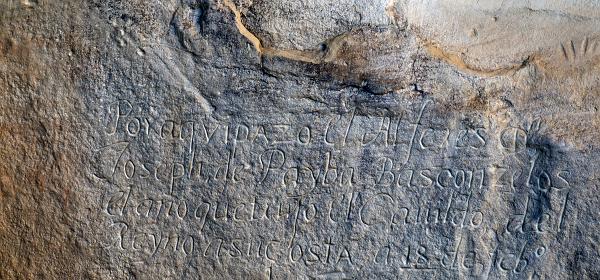 Por aqui pazo el Alferes Dn
Joseph de Payba Basconzelos
el año que trujo el Cauildo del
Reyno a su costa a 18 de febo